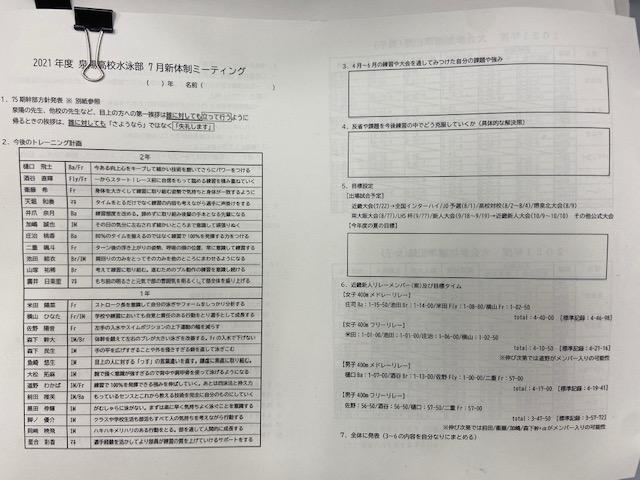 2021年度 泉陽高校水泳部 7月新体制ミーティング
( )年 名前( )
1. 75期幹部方針発表 ※ 別紙参照
泉陽の先生、他校の先生など、目上の方への第一挨拶は誰に対しても立って行うように
帰るときの挨拶は、誰に対しても「さようなら」ではなく「失礼します」
2. 今後のトレーニング計画
2年
樋口 飛士 Ba/Fr 今ある向上心をキープして細かい技術を磨いてさらにパワーをつける
酒谷 直輝 Fly/Fr 一からスタート!レース前に自信をもって臨める練習を積み重ねていく
衛藤 希 Fr 身体を大きくして練習に取り組む姿勢で気持ちと身体が一致するように
天堀 和奏 ﾏﾈ タイムをとるだけでなく練習の内容も考えながら選手に声掛けをする
井爪 奈月 Ba 練習態度を改める。諦めずに取り組み後輩の手本となる先輩になる
加嶋 誠也 IM その日の気分に左右されず細かいところまで意識して頑張りぬく
庄治 桃香 Ba 80%のタイムを揃えるのではなく練習で100%を発揮する力をつける
二重 颯斗 Fr ターン後の浮き上がりの姿勢、呼吸の際の位置、常に意識して練習する
池田 結衣 Br/IM 周囲の力みをとってその力みを他のところにまわせるようになる
山塚 祐勝 Br 考えて練習に取り組む。進むためのプル動作の練習を意識し続ける
廣井 日菜里 ﾏﾈ もち前の明るさと元気で部の雰囲気を明るくして部全体を盛り上げる
1年
米田 陽菜 Fr ストローク長を意識して自分の泳ぎやフォームをしっかり分析する
横山 ひなた Br/IM 学校や練習においても自覚と責任のある行動をとり選手として成長する
佐野 陽音 Fr 左手の入水やスイムポジションの上下運動の幅を減らす
森下 幹大 IM/Br 体幹を鍛えて左右のブレが大きい泳ぎを改善する。Frの入水で下げない
森下 晃生 IM 手の平を広げすぎることや外を掻きすぎる癖を直して泳ぎこむ
魚崎 悠生 IM 目上の人に対する「っす」の言葉遣いを直す。謙虚に素直に取り組む
大松 拓麻 IM 腕で掻く意識が強すぎるので背中や肩甲骨を使って泳げるようになる
道野 わかば IM/Fr 練習で100%を発揮できる強みを伸ばしていく。あとは四泳法と持久力
前田 雅美 IM/Ba もっているセンスとこれから教える技術を完全に自分のものにしていく
黒田 修輝 IM がむしゃらに泳がない。まずは楽に早く気持ちよく泳ぐことを意識する
脚ノ 優介 IM クラスや学校生活も部活もすべて人の気持ちを考えながら行動する
岡崎 暁飛 IM ハキハキメリハリのある行動をとる。部を通して人間的に成長する
星合 彩香 ﾏﾈ 選手経験を活かしてより部員が練習の質を上げていけるサポートをする
3. 4月~6月の練習や大会を通してみつけた自分の課題や強み
4. 反省や課題を今後練習の中でどう克服していくか(具体的な解決策)
5. 目標設定
[出場試合予定]
近畿大会(7/22)→全国インターハイ/JO予選(8/1)/高校対校(8/2~8/4)/堺泉北大会(8/9)
東大阪大会(8/??)/LHS杯(9/??)/新人大会(9/18~9/19)→近畿新人大会(10/9~10/10) その他公式大会
[今年度の夏の目標]
6. 近畿新人リレーメンバー(案)及び目標タイム
[女子400mメドレーリレー]
庄司Ba:1-15-50/池田Br:1-14-00/米田Fly:1-08-00/横山Fr:1-02-50
total:4-40-00 [標準記録:4-46-98]
[女子400mフリーリレー]
米田:1-01-00/池田:1-01-00/庄治:1-06-00/横山:1-02-50
total:4-10-50 [標準記録:4-21-16]
※伸び次第では道野がメンバー入りの可能性
[男子400mメドレーリレー]
樋口Ba:1-07-00/酒谷Br:1-13-00/佐野Fly:1-00-00/二重Fr:57-00
total:4-17-00 [標準記録:4-19-41]
[男子400mフリーリレー]
佐野:56-50/酒谷:56-50/樋口:57-50/二重Fr:57-00
total:3-47-50 [標準記録:3-57-72]
※伸び次第では前田/衛藤/加嶋/森下幹+αがメンバー入りの可能性
7. 全体に発表(3~6の内容を自分なりにまとめる)